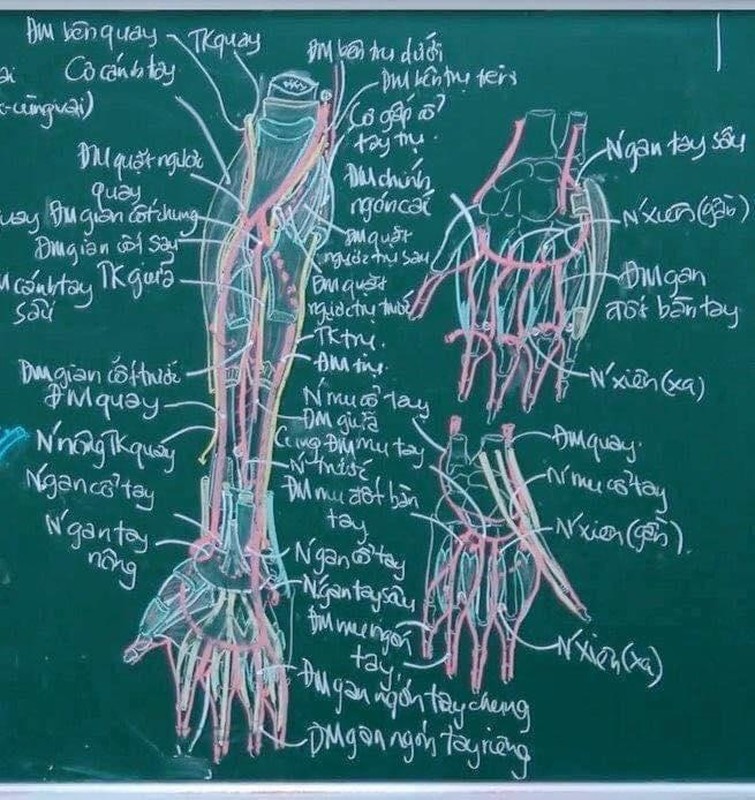 ĐM bên quay
TK quay
Cơ cánh tay
ĐM bên trụ dưới
ĐM bên trụ trên
Cơ gấp cổ
tay trụ
ĐM quặt ngược
quay
ĐM chính
ngón cái
ĐM gian cốt chung
ĐM gian cốt sau
ĐM quặt
ngược trụ sau
cánh tay
sâu
TK giữa
ĐM quặt
ngược trụ trước
TK trụ
ĐM trụ
ĐM gian cốt trước
ĐM quay
N' mu cổ tay
ĐM giữa
Cung ĐM mu tay
N' nông TK quay
N' trước
N' gan cổ tay
ĐM mu đốt bàn
tay
N' gan tay
nông
N' gan cổ tay
N' gan tay sâu
ĐM mu ngón
tay
ĐM gan ngón tay chung
ĐM gan ngón tay riêng
N' gan tay sâu
N' xiên (gần)
ĐM gan
đốt bàn tay
N' xiên (xa)
ĐM quay
N' mu cổ tay
N' xiên (gần)
N' xiên (xa)